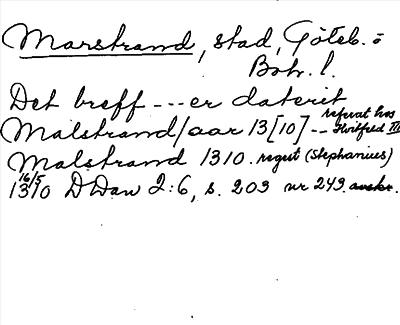 Marstrand, stad, Göteb. o
Boh. l.
Det breff --- er daterit
Malstrand / aar 13[10] -- referat hos Hvitfeld III
Malstrand 1310. regest (Stephanius)
16/5
1310 D Dan 2:6, s. 203 nr 249. avskr.